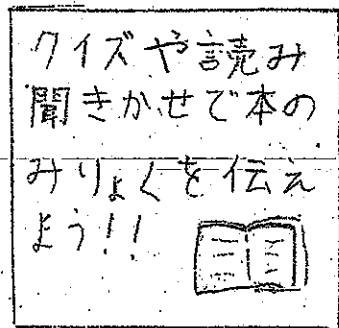 クイズや読み
聞きかせで本の
みりょくを伝え
よう!!